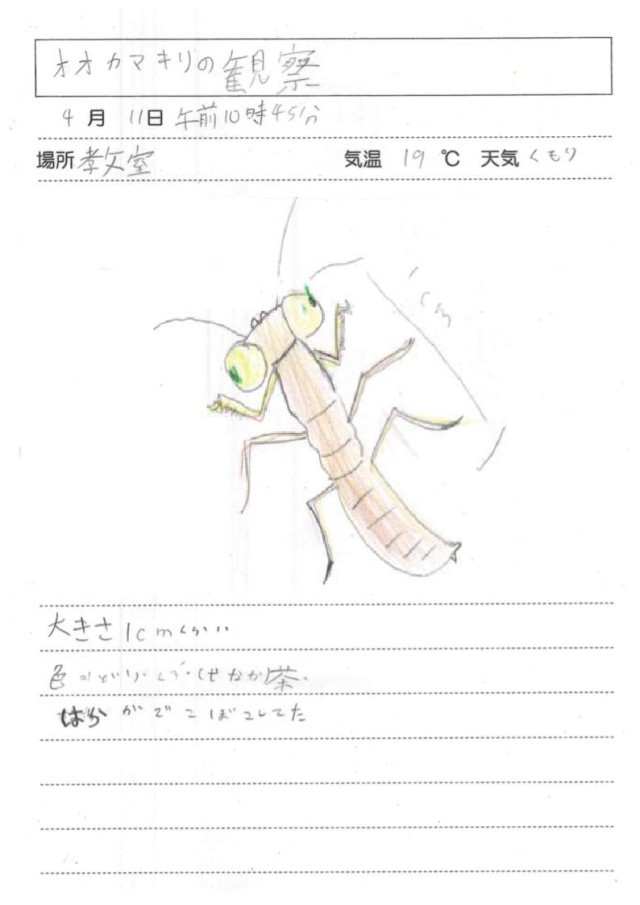 オオカマキリの観察
4月 11日 午前10時45分
場所 教室 気温 19 ℃ 天気 くもり
1cm
大きさ1cmくらい
色 茶
がでこぼこしてた